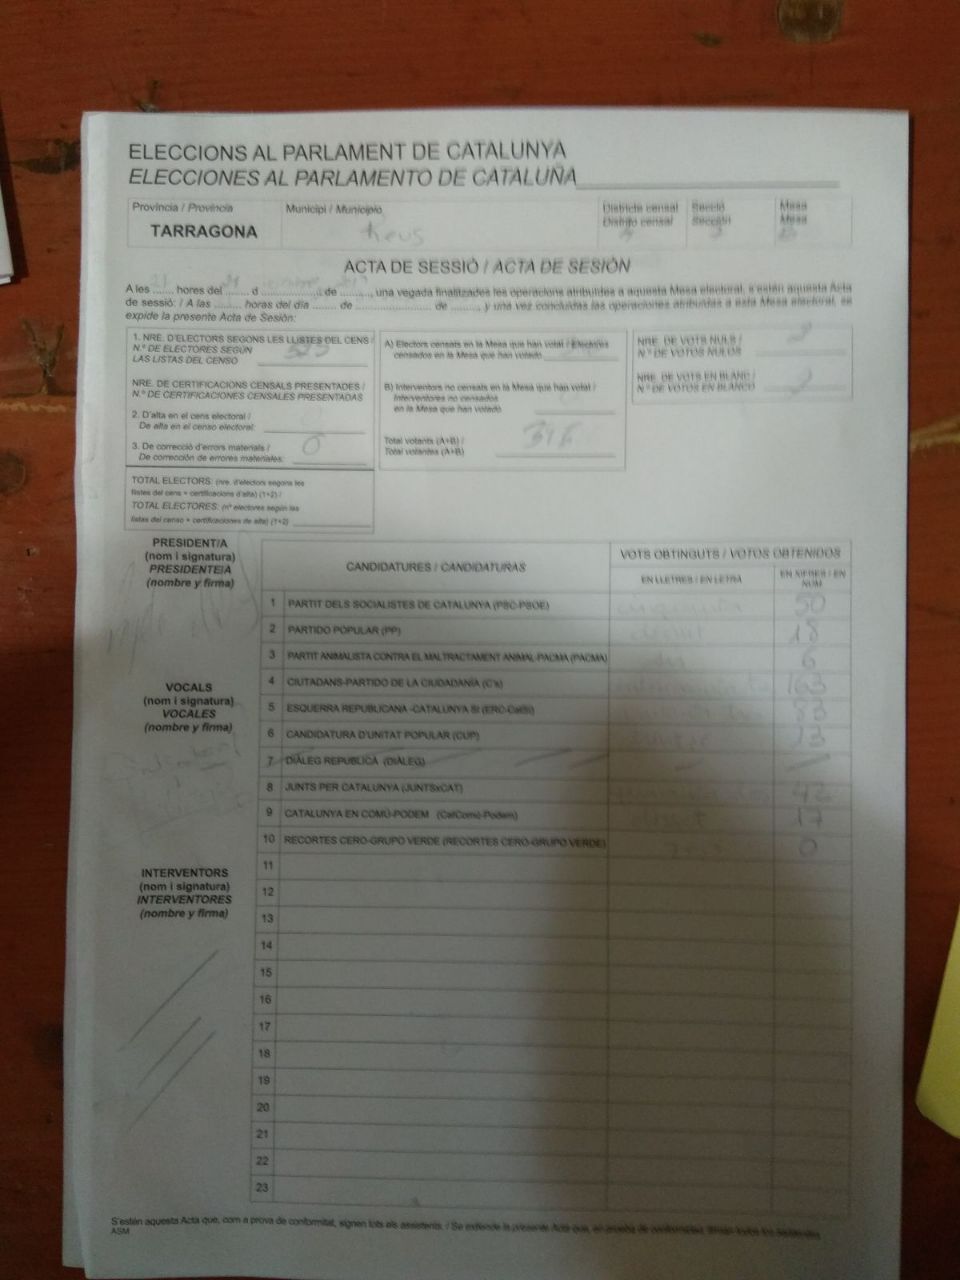 ELECCIONS AL PARLAMENT DE CATALUNYA
ELECCIONES AL PARLAMENTO DE CATALUÑA
Província / Provincia
TARRAGONA
Municipi / Municipio
Reus
Districte censal
Distrito censal
Secció
Sección
Mesa
Mesa
ACTA DE SESSIÓ / ACTA DE SESIÓN
A les ....... hores del ....... d ................, de .........., una vegada finalitzades les operacions atribuïdes a aquesta Mesa electoral, s'estén aquesta Acta
de sessió: / A las ........ horas del día ......... de ........................ de ........, y una vez concluidas las operaciones atribuidas a esta Mesa electoral, se
expide la presente Acta de Sesión:
1. NRE. D'ELECTORS SEGONS LES LLISTES DEL CENS /
N.º DE ELECTORES SEGÚN
LAS LISTAS DEL CENSO
NRE. DE CERTIFICACIONS CENSALS PRESENTADES /
N.º DE CERTIFICACIONES CENSALES PRESENTADAS
2. D'alta en el cens electoral /
De alta en el censo electoral:
3. De correcció d'errors materials /
De corrección de errores materiales:
0
TOTAL ELECTORS: (nre. d'electors segons les
llistes del cens + certificacions d'alta) (1+2) /
TOTAL ELECTORES: (nº electores según las
listas del censo + certificaciones de alta) (1+2)
A) Electors censats en la Mesa que han votat / Electores
censados en la Mesa que han votado
B) Interventors no censats en la Mesa que han votat /
Interventores no censados
en la Mesa que han votado
Total votants (A+B) /
Total votantes (A+B)
NRE. DE VOTS NULS /
N.º DE VOTOS NULOS
NRE. DE VOTS EN BLANC /
N.º DE VOTOS EN BLANCO
PRESIDENT/A
(nom i signatura)
PRESIDENTE/A
(nombre y firma)
VOCALS
(nom i signatura)
VOCALES
(nombre y firma)
INTERVENTORS
(nom i signatura)
INTERVENTORES
(nombre y firma)
CANDIDATURES / CANDIDATURAS
VOTS OBTINGUTS / VOTOS OBTENIDOS
EN LLETRES / EN LETRA
EN XIFRES / EN
NÚM
1 PARTIT DELS SOCIALISTES DE CATALUNYA (PSC-PSOE) cinquanta 50
2 PARTIDO POPULAR (PP) 18
3 PARTIT ANIMALISTA CONTRA EL MALTRACTAMENT ANIMAL-PACMA (PACMA) 6
4 CIUTADANS-PARTIDO DE LA CIUDADANÍA (C's) 163
5 ESQUERRA REPUBLICANA -CATALUNYA SÍ (ERC-CatSí) 83
6 CANDIDATURA D'UNITAT POPULAR (CUP) 13
7 DIÀLEG REPUBLICÀ (DIÀLEG)
8 JUNTS PER CATALUNYA (JUNTSxCAT) 42
9 CATALUNYA EN COMÚ-PODEM (CatComú-Podem) 17
10 RECORTES CERO-GRUPO VERDE (RECORTES CERO-GRUPO VERDE) 0
11
12
13
14
15
16
17
18
19
20
21
22
23
S'estén aquesta Acta que, com a prova de conformitat, signen tots els assistents. / Se extiende la presente Acta que, en prueba de conformidad, firman todos los asistentes.
ASM